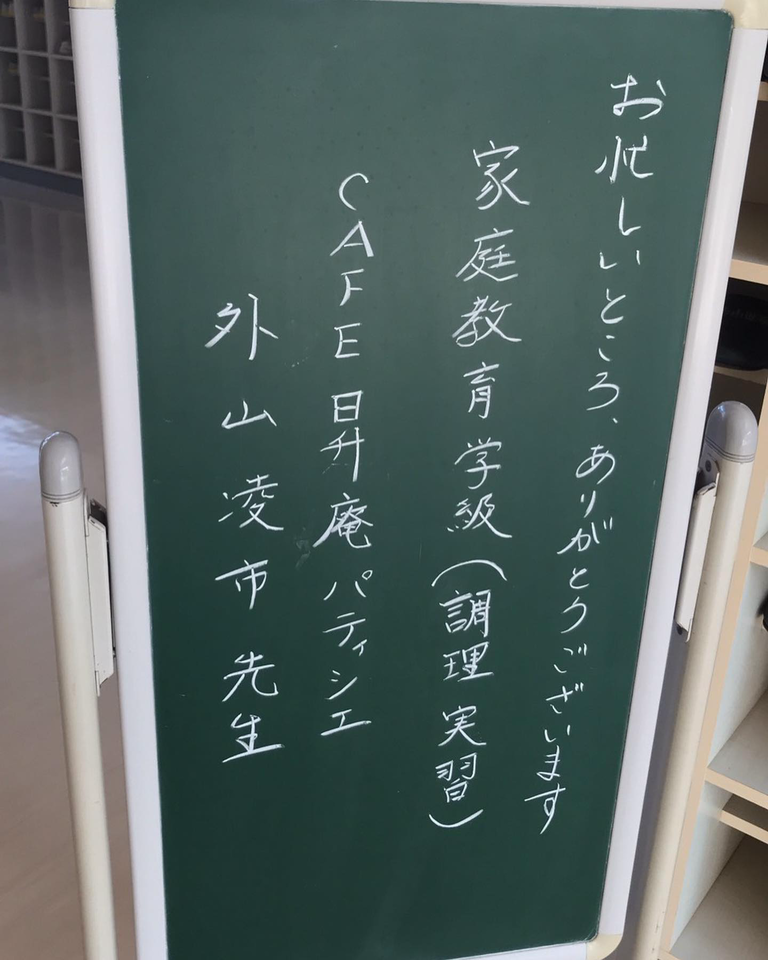 お忙しいところ、ありがとうございます
家庭教育学級(調理実習)
CAFE日昇庵パティシエ
外山凌市先生